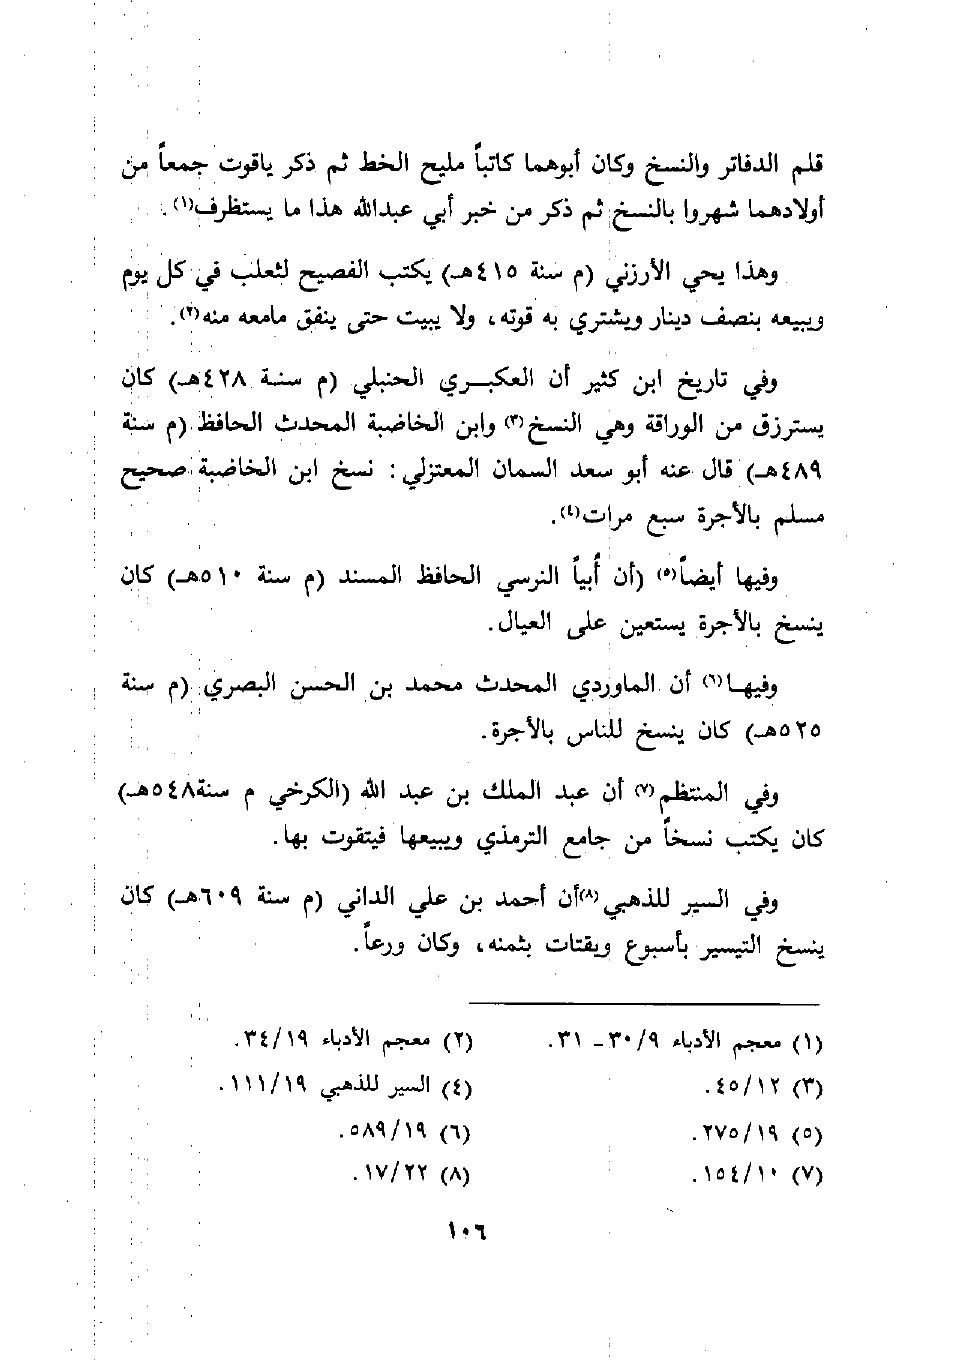 قلم الدفاتر والنسخ وكان أبوهما كاتباً مليح الخط ثم ذكر ياقوت جمعاً من
أولادهما شهروا بالنسخ ثم ذكر من خبر أبي عبدالله هذا ما يستظرف(١).
وهذا يحي الأرزني (م سنة ٤١٥هـ) يكتب الفصيح لثعلب في كل يوم
ويبيعه بنصف دينار ويشتري به قوته، ولا يبيت حتى ينفق مامعه منه(٢).
وفي تاريخ ابن كثير أن العكبري الحنبلي (م سنة ٤٢٨هـ) كان
يسترزق من الوراقة وهي النسخ(٣) وابن الخاضبة المحدث الحافظ (م سنة
٤٨٩هـ) قال عنه أبو سعد السمان المعتزلي: نسخ ابن الخاضبة صحيح
مسلم بالأجرة سبع مرات(٤).
وفيها أيضاً(٥) (أن أُبياً النرسي الحافظ المسند (م سنة ٥١٠هـ) كان
ينسخ بالأجرة يستعين على العيال.
وفيها(٦) أن الماوردي المحدث محمد بن الحسن البصري (م سنة
٥٢٥هـ) كان ينسخ للناس بالأجرة.
وفي المنتظم(٧) أن عبد الملك بن عبد الله (الكرخي م سنة٥٤٨هـ)
كان يكتب نسخاً من جامع الترمذي ويبيعها فيتقوت بها.
وفي السير للذهبي(٨)أن أحمد بن علي الداني (م سنة ٦٠٩هـ) كان
ينسخ التيسير بأسبوع ويقتات بثمنه، وكان ورعاً.
(١) معجم الأدباء ٩/ ٣٠ ـ ٣١.
(٢) معجم الأدباء ١٩/ ٣٤.
(٣) ١٢/ ٤٥.
(٤) السير للذهبي ١٩/ ١١١.
(٥) ١٩/ ٢٧٥.
(٦) ١٩/ ٥٨٩.
(٧) ١٠/ ١٥٤.
(٨) ٢٢/ ١٧.
١٠٦